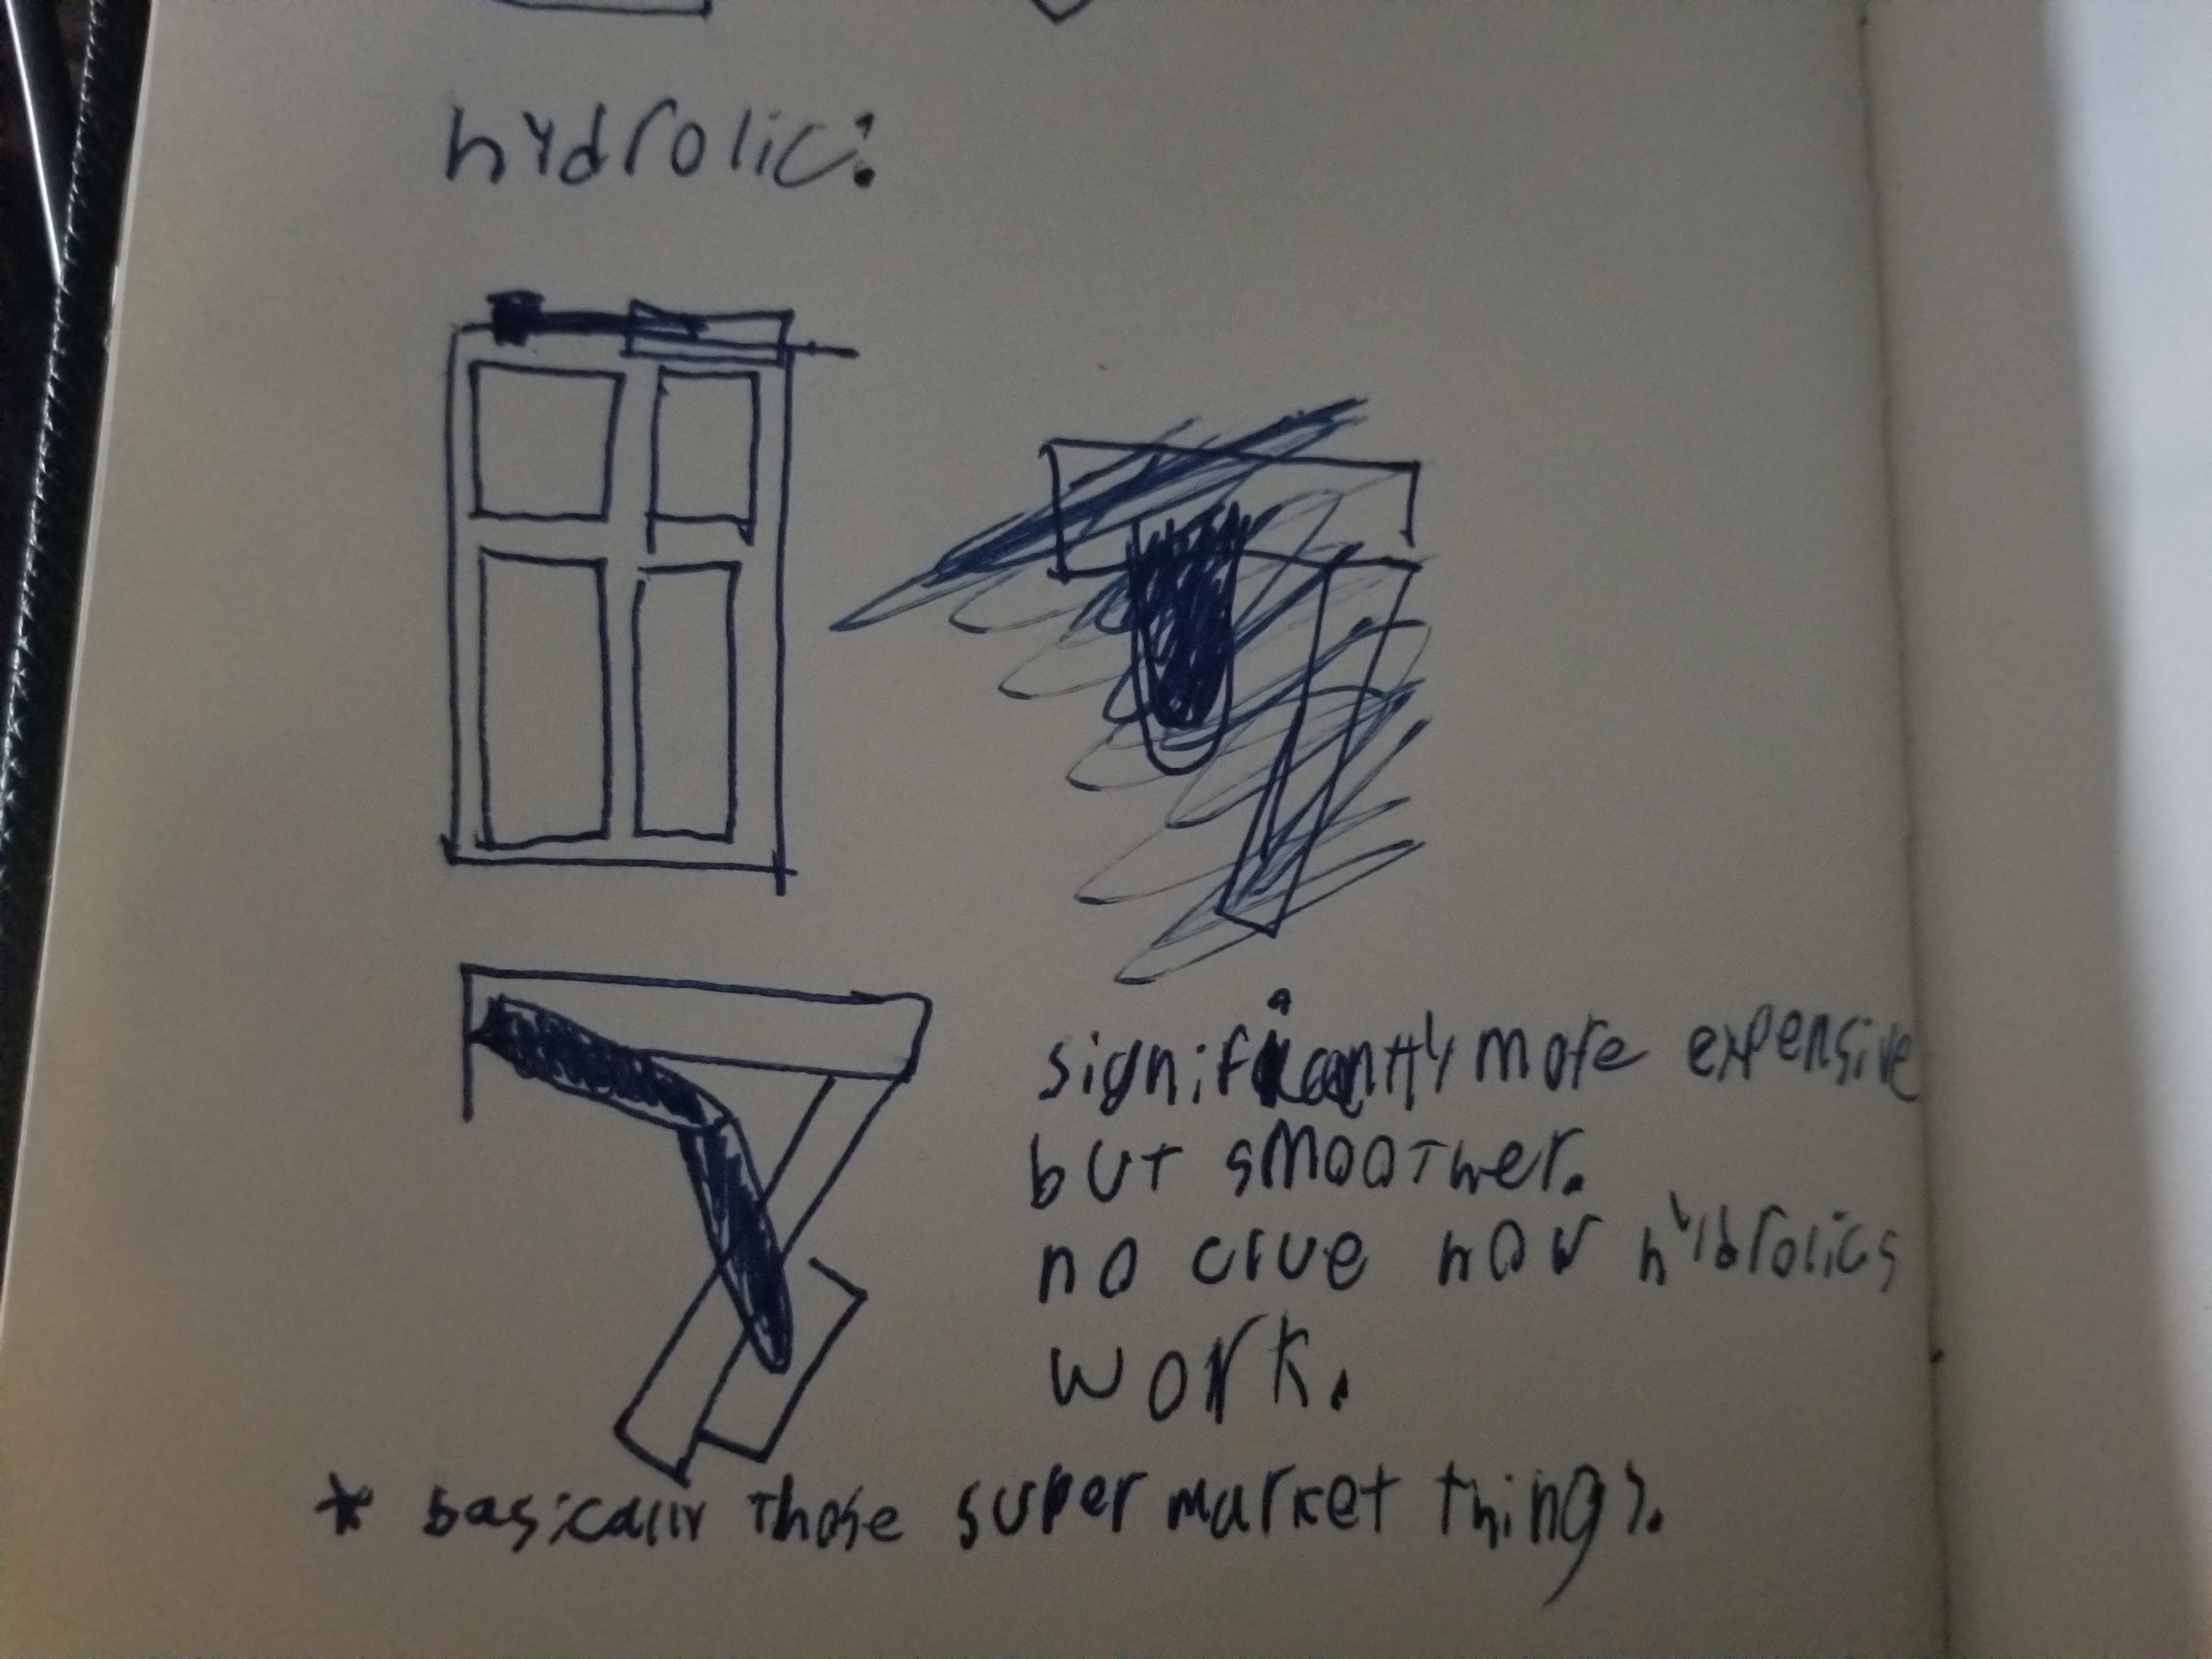 hydrolic:
significantly more expensive
but smoother.
no clue how hydrolics
work.
* basically those super market things.